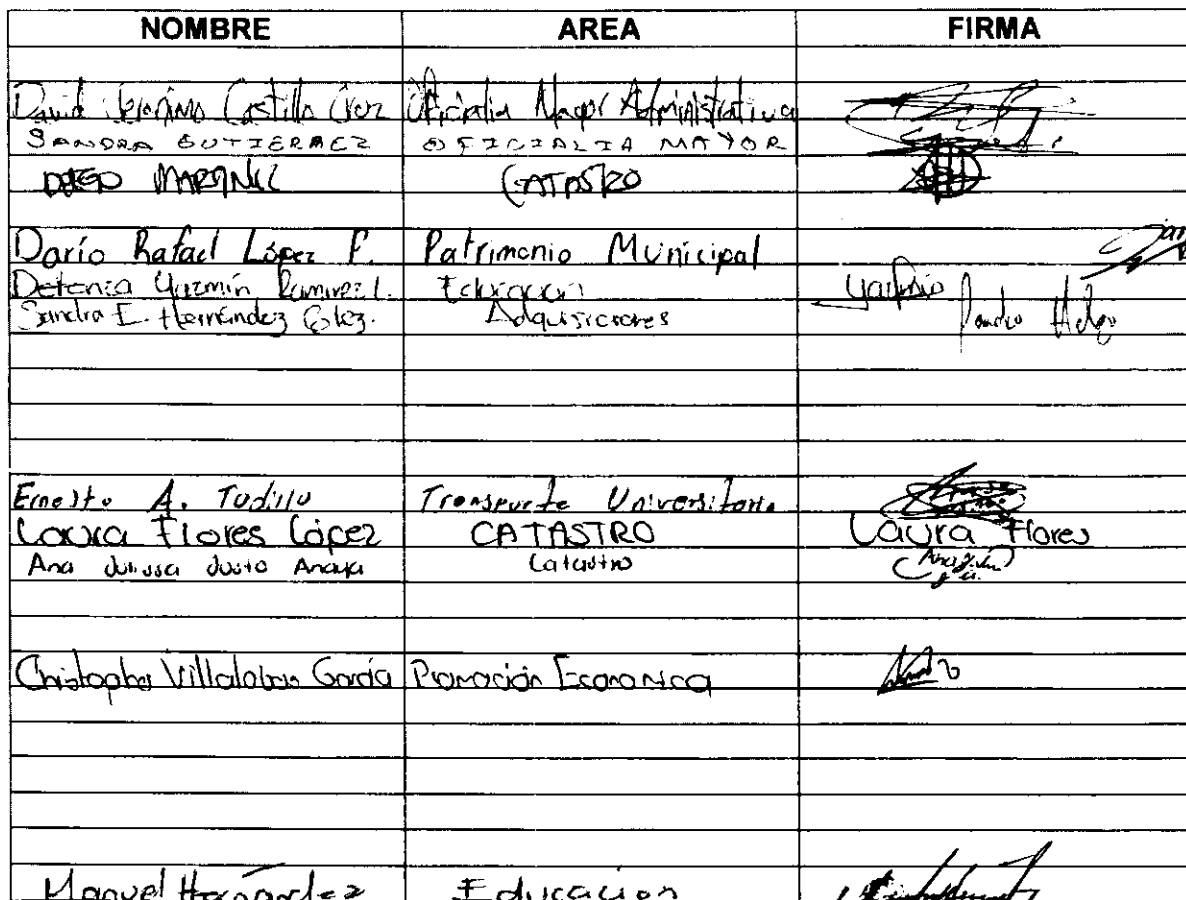 NOMBRE AREA FIRMA
David Jerónimo Castillo Cruz Oficialia Mayor Administrativa
SANDRA GUTIERREZ OFICIALIA MAYOR
DIEGO MARTINEZ CATASTRO
Darío Rafael López P. Patrimonio Municipal
Yazmín Ramirez L. Educacion Yazmin
Sandra E. Hernández Glez. Adquisiciones
Ernesto A. Transporte Universitario
Laura Flores López CATASTRO Laura Flores
Ana Julissa Justo Anaya Catastro
Christopher Villalobos García Promoción Economica
Manuel Hernandez Educacion